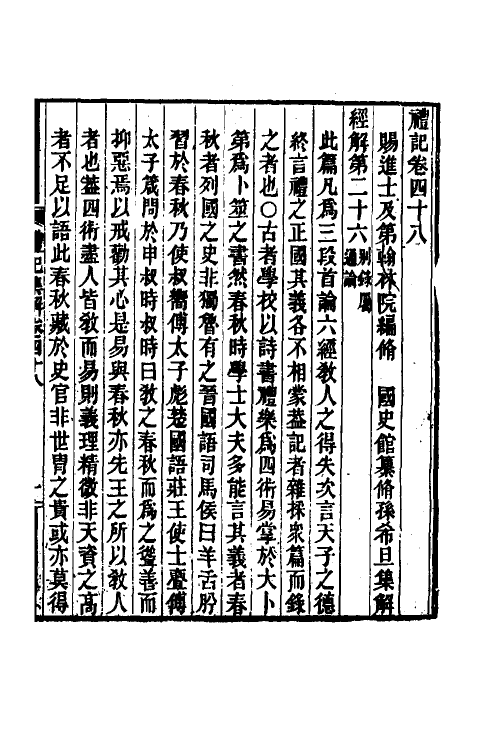 禮記卷四十八
賜進士及第翰林院編脩 國史館纂脩孫希旦集解
經解第二十六別錄屬通論
此篇凡爲三段首論六經教人之得失次言天子之德
終言禮之正國其義各不相蒙葢記者雜採衆篇而錄
之者也○古者學校以詩書禮樂爲四術易掌於大卜
第爲卜筮之書然春秋時學士大夫多能言其義者春
秋者列國之史非獨魯有之晉國語司馬侯曰羊舌肸
習於春秋乃使叔嚮傅太子彪楚國語莊王使士亹傅
太子葴問於申叔時叔時曰敎之春秋而爲之聳善而
抑惡焉以戒勸其心是易與春秋亦先王之所以敎人
者也葢四術盡人皆敎而易則義理精微非天資之高
者不足以語此春秋藏於史官非世胄之貴或亦莫得
記集解卷四十八